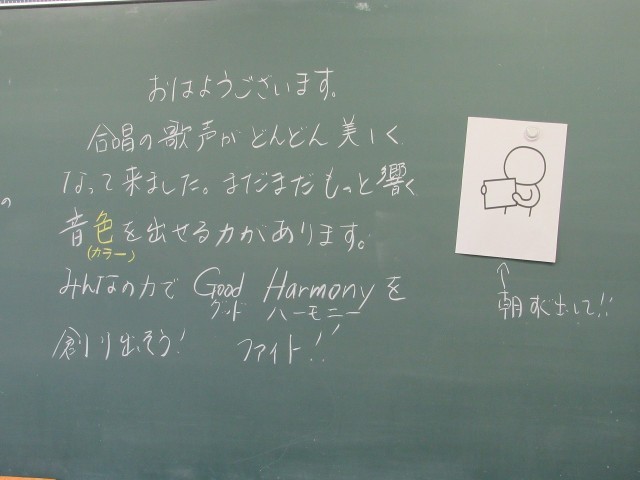 おはようございます。
合唱の歌声がどんどん美しく
なって来ました。まだまだもっと響く
音色を出せる力があります。
(カラー)
みんなの力で Good Harmonyを
グッド ハーモニー
創り出そう! ファイト!!
↑
朝 出して!!
の